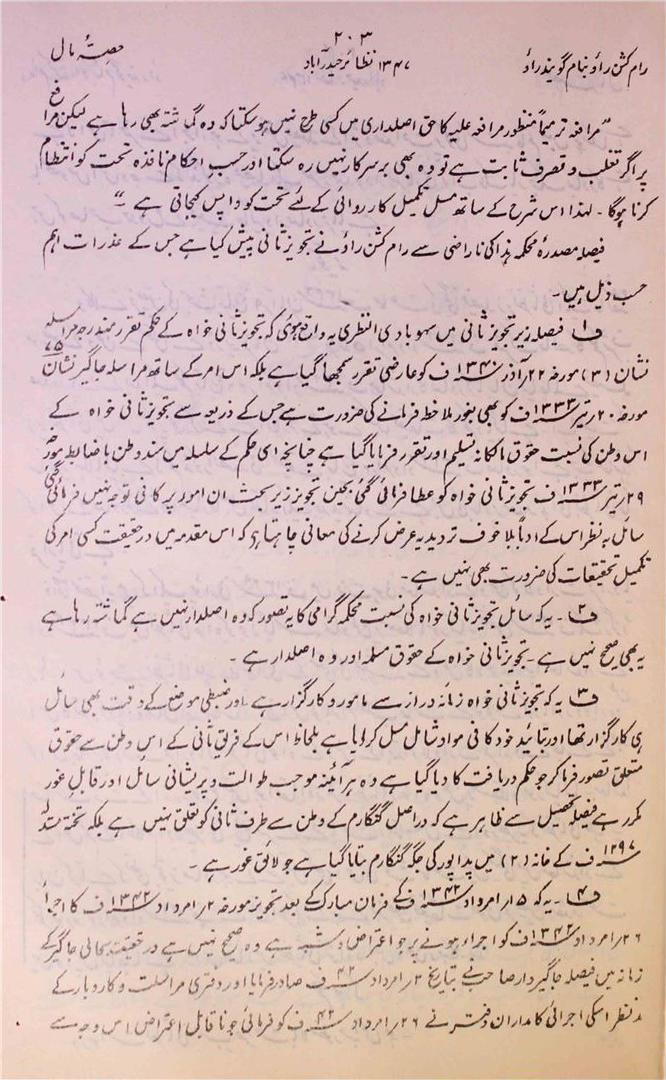 ۲۰۳
رام کشن راؤ بنام گویند راؤ
۱۳۴۷ نظائر حیدرآباد
حصۂ مال
”مرافعہ ترمیماً منظور مرافعہ علیہ کا حق اصلداری میں کسی طرح نہیں ہوسکتا کہ وہ گماشتہ بھی رہا ہے لیکن مرافع
پر اگر تغلب و تصرف ثابت ہے تو وہ بھی برسرکار نہیں رہ سکتا اور حسب احکام نافذہ تحت کو انتظام
کرنا ہوگا ۔ لہذا اس شرح کے ساتھ مسل تکمیل کارروائی کے لئے تحت کو واپس کیجاتی ہے ۔“
فیصلہ مصدرۂ محکمہ ہذا کی ناراضی سے رام کشن راؤ نے تجویز ثانی پیش کیا ہے جس کے عذرات اہم
حسب ذیل ہیں ۔
ف۱ فیصلہ زیر تجویز ثانی میں سہو بادی النظری یہ واقع ہوئی کہ تجویز ثانی خواہ کے حکم تقرر مندرجہ مراسلہ
نشان (۳) مورخہ ۲۲ آذر ۱۳۴۰ ف کو عارضی تقرر سمجھا گیا ہے بلکہ اس امر کے ساتھ مراسلہ جاگیر نشان ۷۵
مورخہ ۲۰ تیر ۱۳۳۳ ف کو بھی بغور ملاحظہ فرمانے کی ضرورت ہے جس کے ذریعہ سے تجویز ثانی خواہ کے
اس وطن کی نسبت حقوق مالکانہ تسلیم اور تقرر فرمایا گیا ہے چنانچہ اسی حکم کے سلسلہ میں سند وطن باضابطہ مورخہ
۲۹ تیر ۱۳۳۳ ف تجویز ثانی خواہ کو عطا فرمائی گئی بحین تجویز زیر بحث ان امور پر کافی توجہ نہیں فرمائی گئی
سائل بہ نظر اس کے ادباً بلا خوف تردید یہ عرض کرنے کی معافی چاہتا ہے کہ اس مقدمہ میں درحقیقت کسی امر کی
تکمیل تحقیقات کی ضرورت بھی نہیں ہے ۔
ف۲ ۔ یہ کہ سائل تجویز ثانی خواہ کی نسبت محکمہ گرامی کا یہ تصور کہ وہ اصلدار نہیں ہے گماشتہ رہا ہے
یہ بھی صحیح نہیں ہے ۔ تجویز ثانی خواہ کے حقوق مسلمہ اور وہ اصلدار ہے ۔
ف۳ یہ کہ تجویز ثانی خواہ زمانہ دراز سے مامور و کارگزار ہے اور ضبطی موضع کے وقت بھی سائل
ہی کارگزار تھا اور بتائید خود کافی مواد شامل مسل کرایا ہے بلحاظ اس کے فریق ثانی کے اس وطن سے حقوق
متعلق تصور فرما کر جو حکم دریافت کا دیا گیا ہے وہ ہر آئینہ موجب طوالت و پریشانی سائل اور قابل غور
مکرر ہے فیصلہ تحصیل سے ظاہر ہے کہ دراصل گنگارم کے وطن سے طرف ثانی کو تعلق نہیں ہے بلکہ تختہ
۱۲۹۷ ف کے خانہ (۲) میں پداپور کی جگہ گنگارم بتایا گیا ہے جو لائق غور ہے ۔
ف۴ ۔ یہ کہ ۱۵ امرداد ۱۳۴۲ ف کے فرمان مبارک کے بعد تجویز مورخہ ۲ امرداد ۱۳۴۲ ف کا اجرا
۲۶ امرداد ۱۳۴۲ ف کو اجراء ہونے پر جو اعتراض و شبہ ہے وہ صحیح نہیں ہے درحقیقت بحالی جاگیر کے
زمانہ میں فیصلہ جاگیردار صاحب نے بتاریخ ۲ امرداد ۴۲ ف صادر فرمایا اور دفتری مراسلت و کاروبار کے
مدنظر اسکی اجرائی کامداران دفتر نے ۲۶ امرداد ۴۲ ف کو فرمائی جو ناقابل اعتراض اس وجہ سے